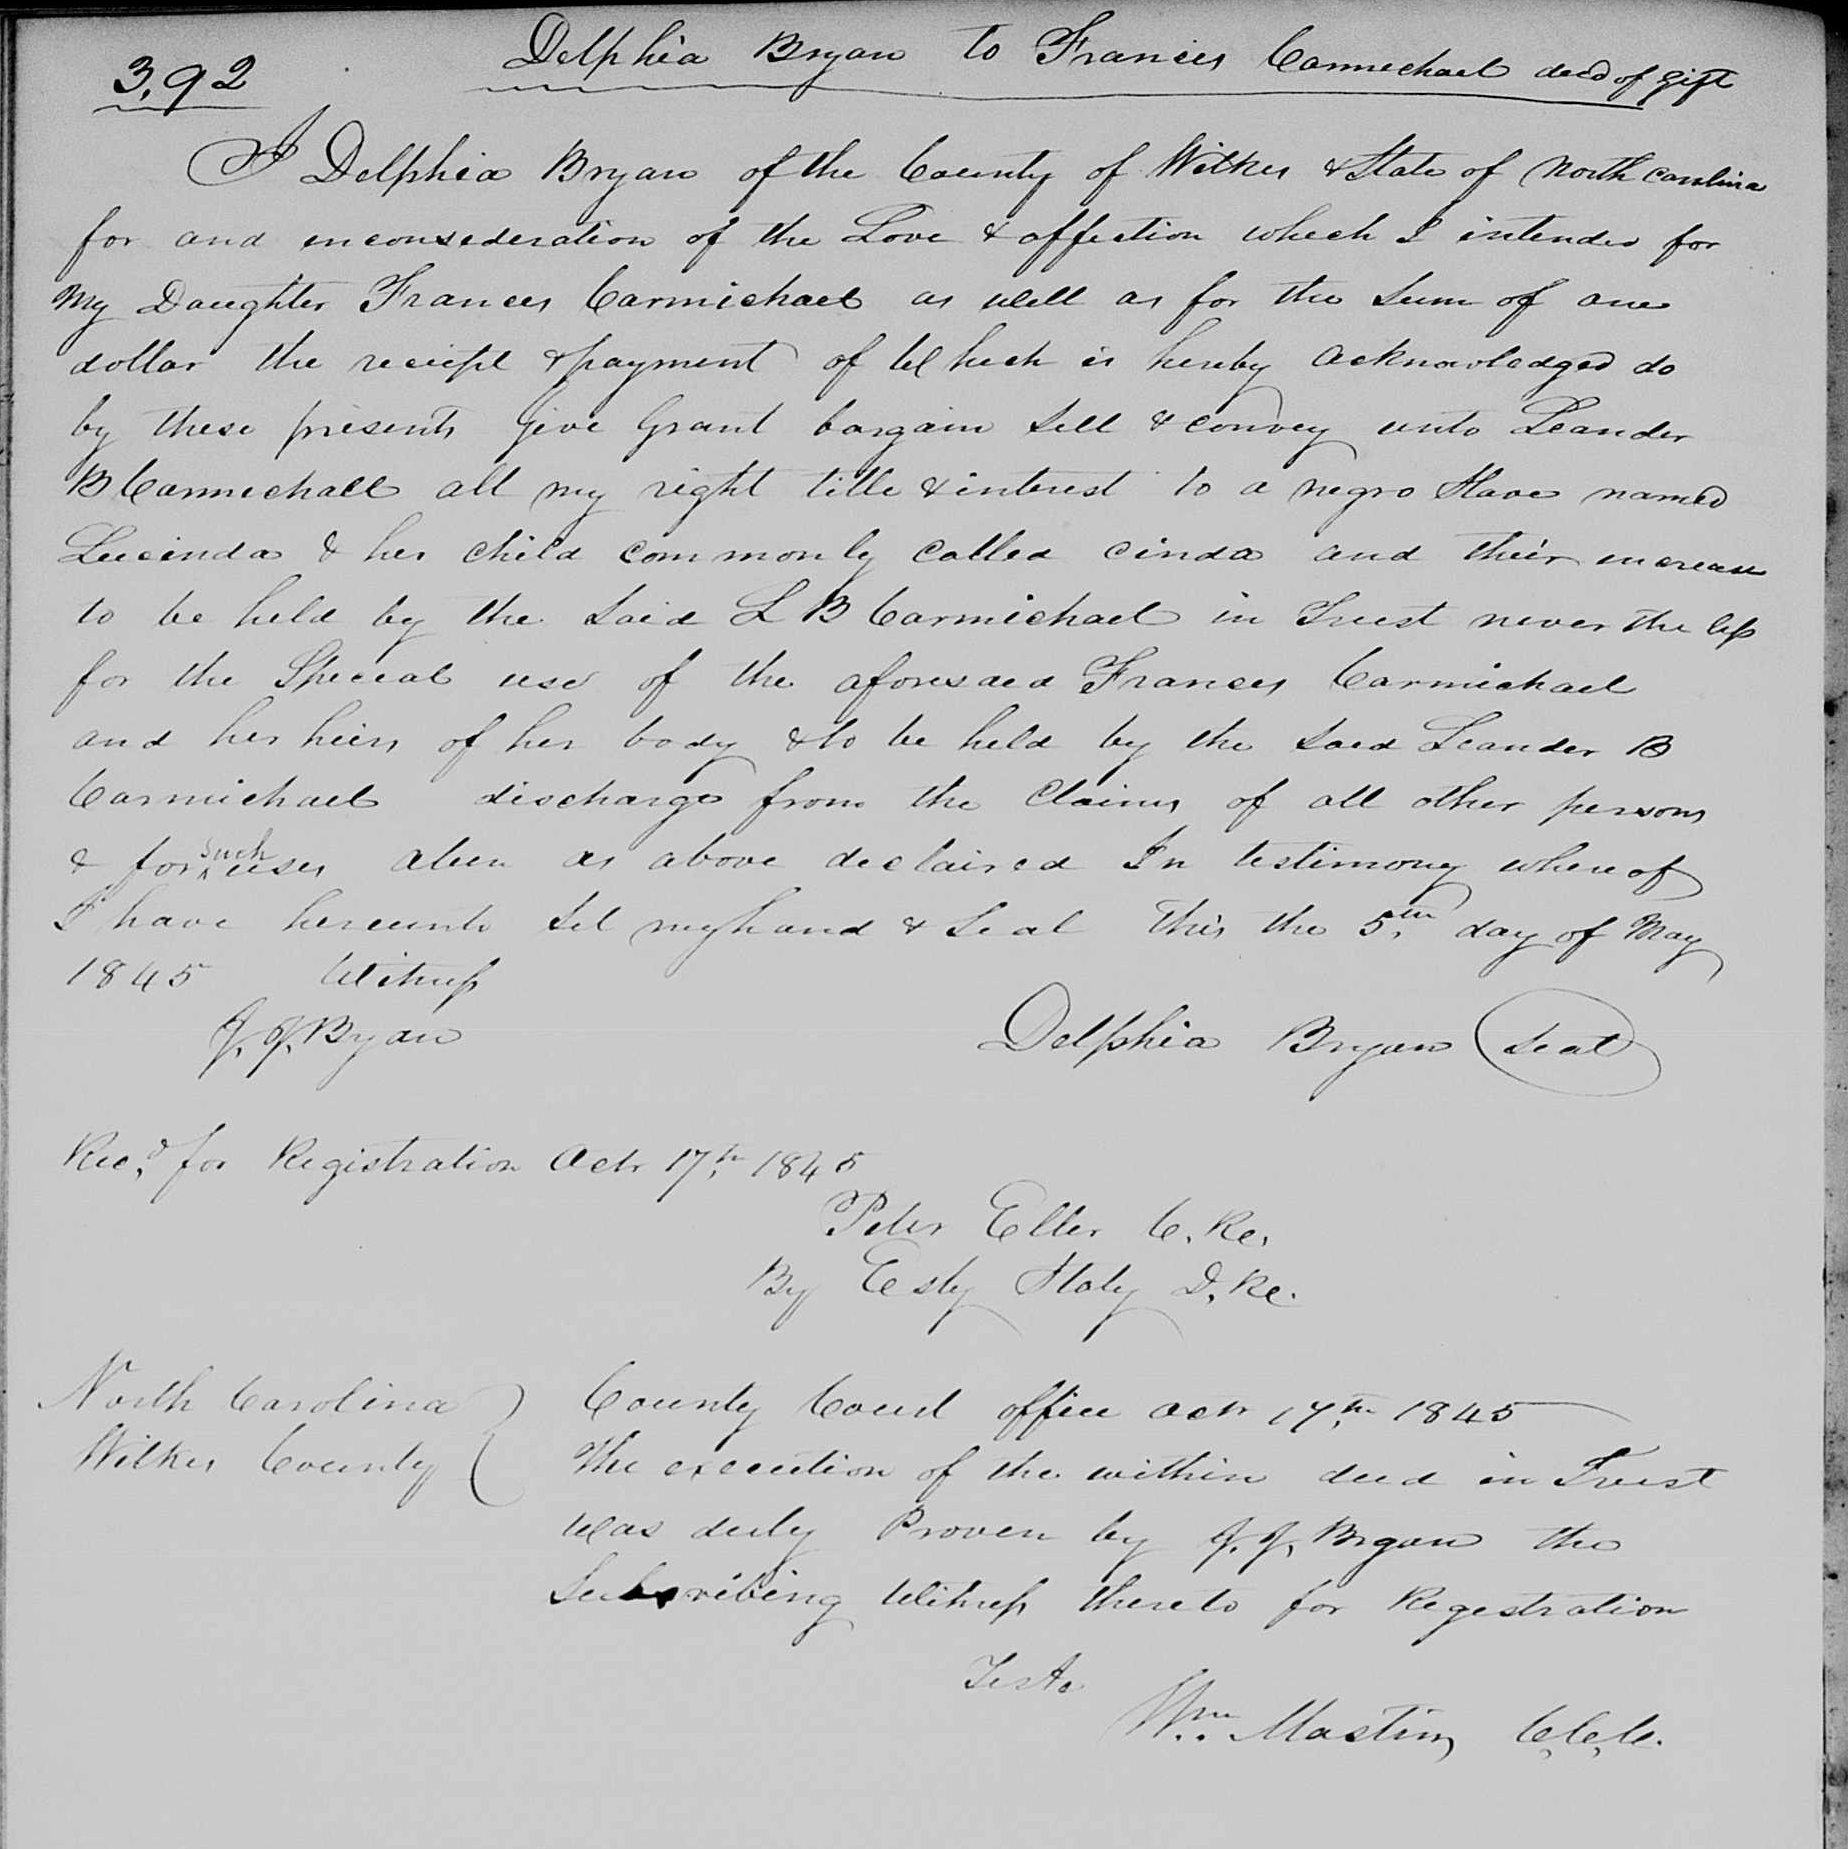 392
Delphia Bryan to Frances Carmichael deed of gift
I Delphia Bryan of the County of Wilkes & State of North Carolina
for and inconsederation of the Love & affection which I intendes for
My Daughter Frances Carmichael as well as for the Sum of one
dollar the reciept & payment of Which is hereby acknowledged do
by these presents Give Grant bargain Sell & convey unto Leander
B Carmichael all my right title & interest to a negro Slave named
Lucinda & her child commonly called cinda and their increase
to be held by the Said L B Carmichael in Trust never the less
for the Special use of the aforesaid Frances Carmichael
and her hiers of her body & to be held by the Said Leander B
Carmichael discharge from the Claims of all other persons
& for such uses alien as above declaired In testimony whereof
I have hereunto Set my hand & Seal This the 5th day of May
1845 Witness
J. J. Bryan
Delphia Bryan Seal
Recd for Registration Octr 17th 1845
Peter Eller C. Re.
By Esly Staly D. Re.
North Carolina
Wilkes County
County Court office Octr 17th 1845
The execution of the within deed in Trust
Was duly Proven by J. J. Bryan the
Subscribing Witness thereto for Regestration
Teste
Wm Mastin C.C.C.